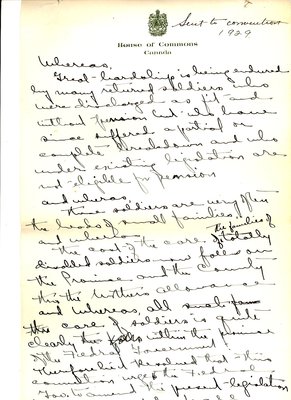 Sent to convention
1929
House of Commons
Canada
Whereas,
Great hardship is being endured
by many returned soldiers who
were discharged as fit and
without pension but who have
since suffered a partial or
complete breakdown and who
under existing legislation are
not eligible for pension
and whereas
these soldiers are very often
the heads of small families,
and whereas
the families of
the cost of the care of totally
disabled soldiers now falls on
the Province and the County
thru the Mothers allowance
and whereas, all such
the care of soldiers is quite
clearly the within the province
of the Federal Government
Therefore be it Resolved that this
convention urges the Federal
Gov. to amend the present legislation